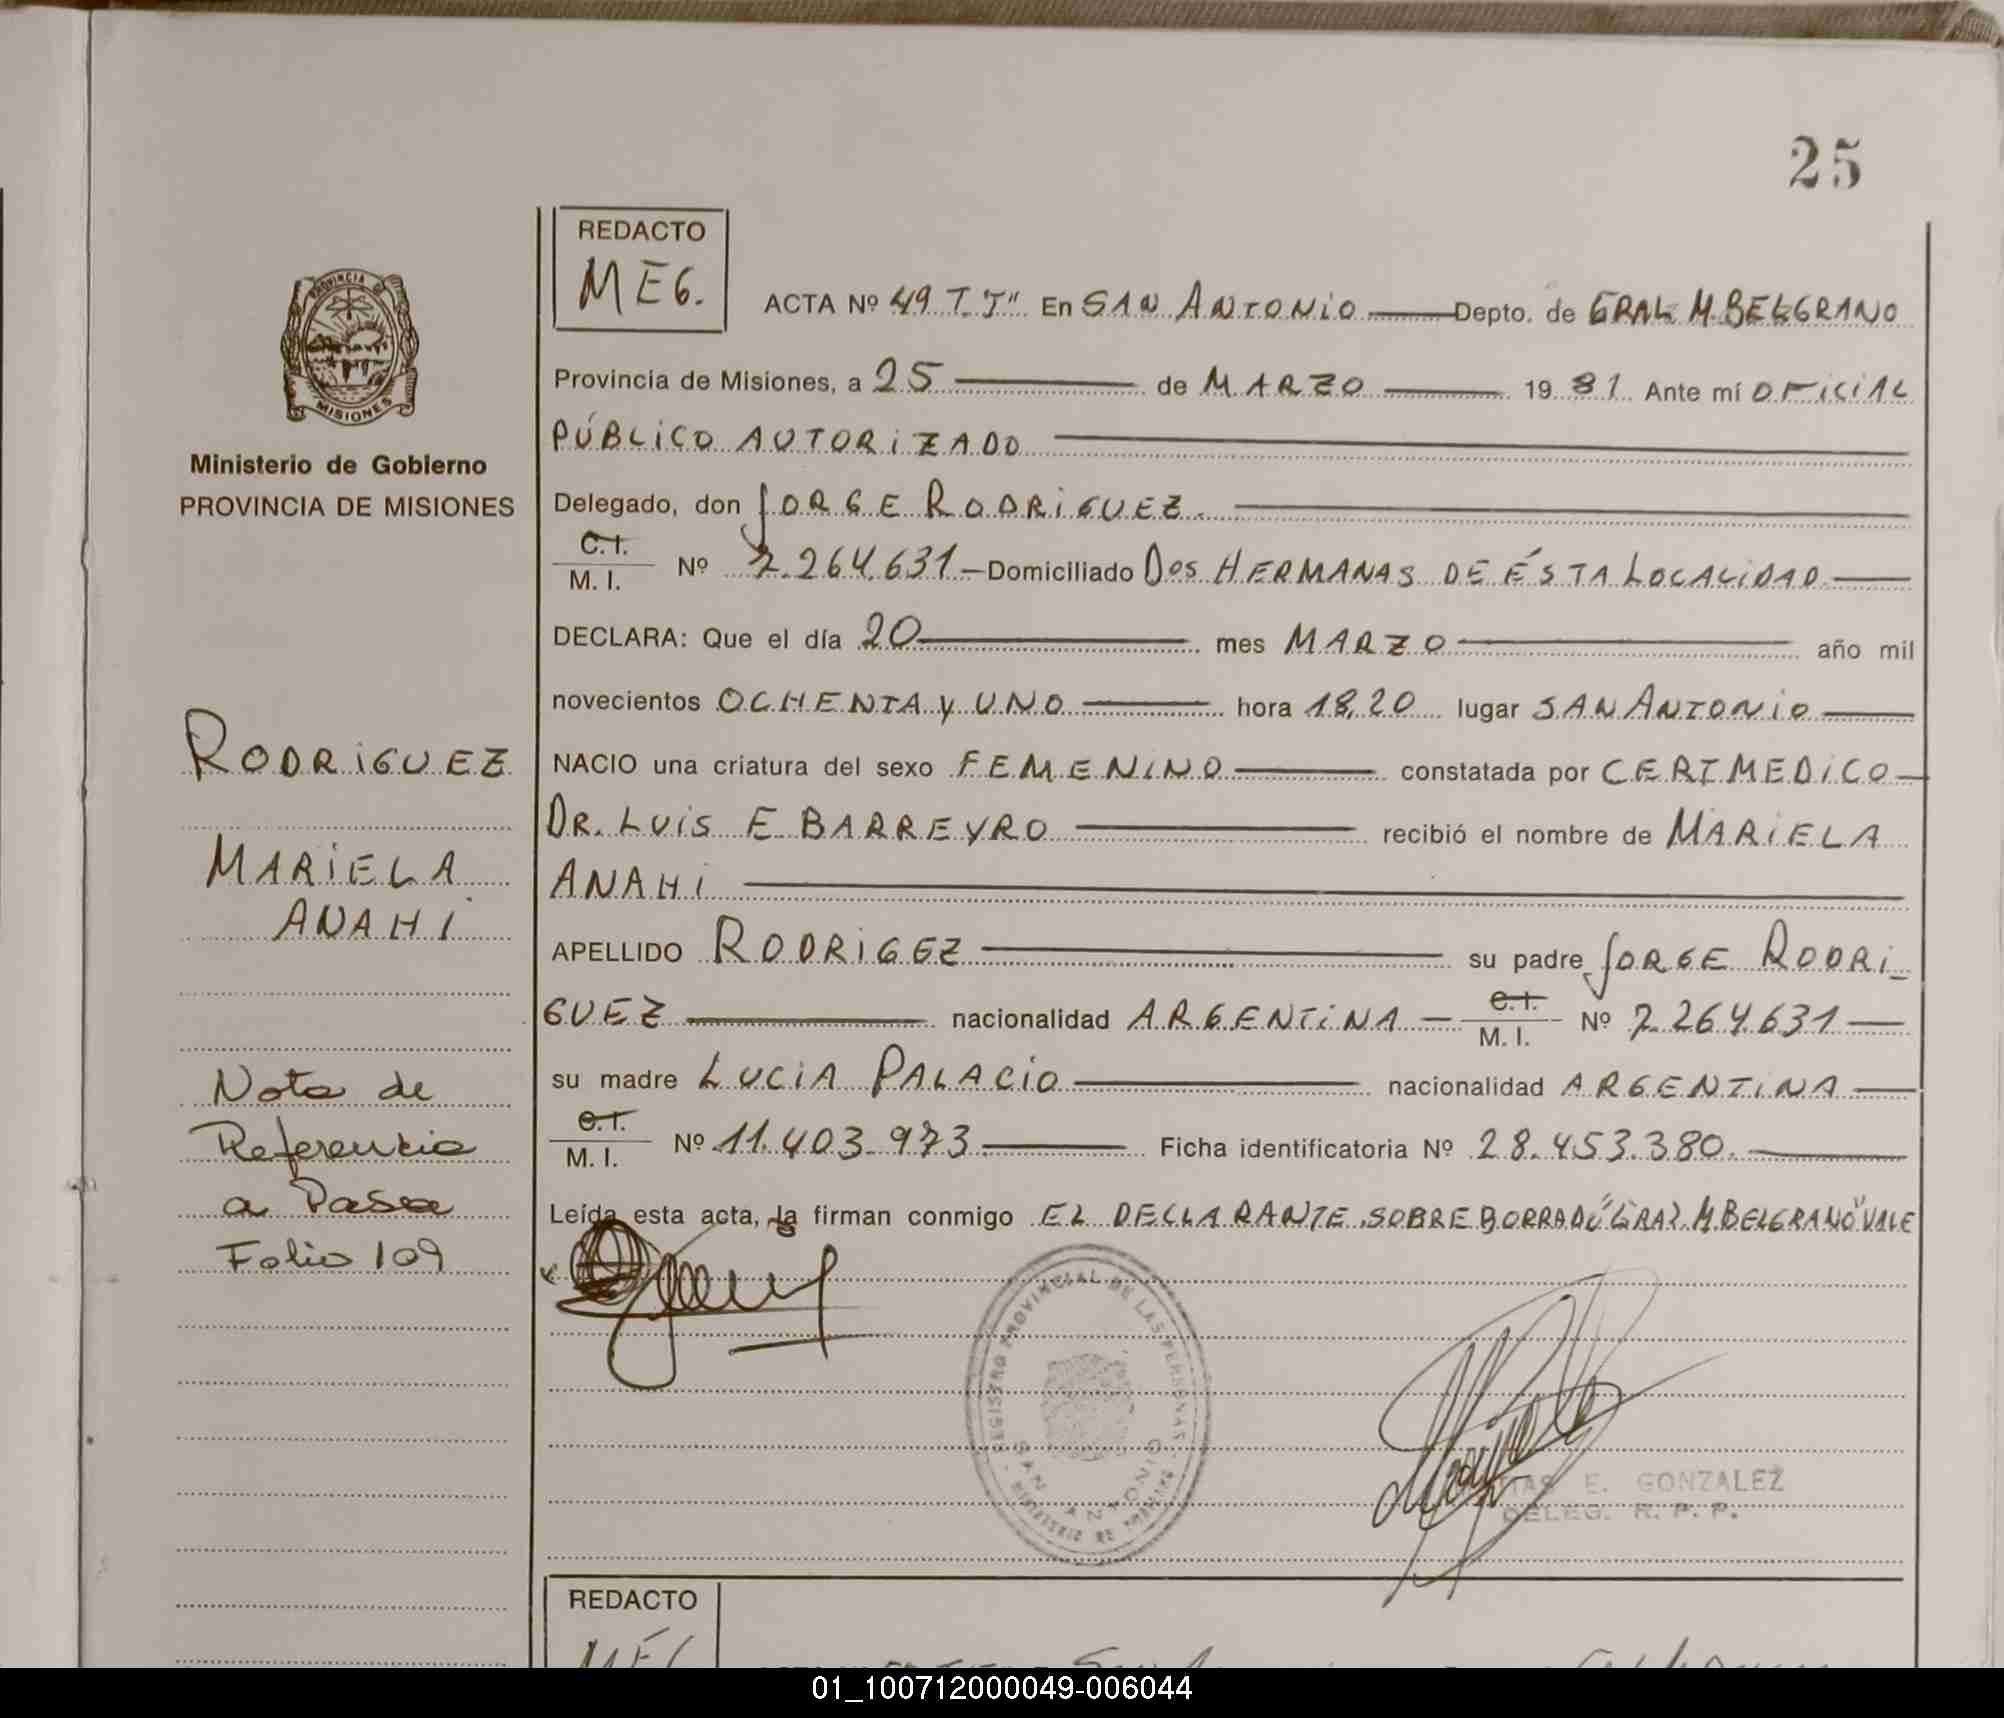 25
REDACTO
MEG.
ACTA Nº 49 T."I" En SAN ANTONIO Depto. de GRAL M. BELGRANO
Provincia de Misiones, a 25 de MARZO 19 81 Ante mí OFICIAL
PÚBLICO AUTORIZADO
Delegado, don JORGE RODRIGUEZ.
C. I.
M. I. Nº 7.264.631 - Domiciliado DOS HERMANAS DE ÉSTA LOCALIDAD
DECLARA: Que el día 20 mes MARZO año mil
novecientos OCHENTA y UNO hora 18,20 lugar SAN ANTONIO
NACIO una criatura del sexo FEMENINO constatada por CERT MEDICO
DR. LUIS E BARREYRO recibió el nombre de MARIELA
ANAHI
APELLIDO RODRIGEZ su padre JORGE RODRI-
GUEZ nacionalidad ARGENTINA - C. I.
M. I. Nº 7.264.631
su madre LUCIA PALACIO nacionalidad ARGENTINA
C. I.
M. I. Nº 11.403.973 Ficha identificatoria Nº 28.453.380.
Leída esta acta, la firman conmigo EL DECLARANTE SOBREBORRADO "GRAL M. BELGRANO" VALE
PROVINCIA DE
MISIONES
Ministerio de Gobierno
PROVINCIA DE MISIONES
RODRIGUEZ
MARIELA
ANAHI
Nota de
Referencia
a Pasa
Folio 109
REGISTRO PROVINCIAL DE LAS PERSONAS
SAN ANTONIO
E. GONZALEZ
DELEG. R. P. P.
REDACTO
01_100712000049-006044